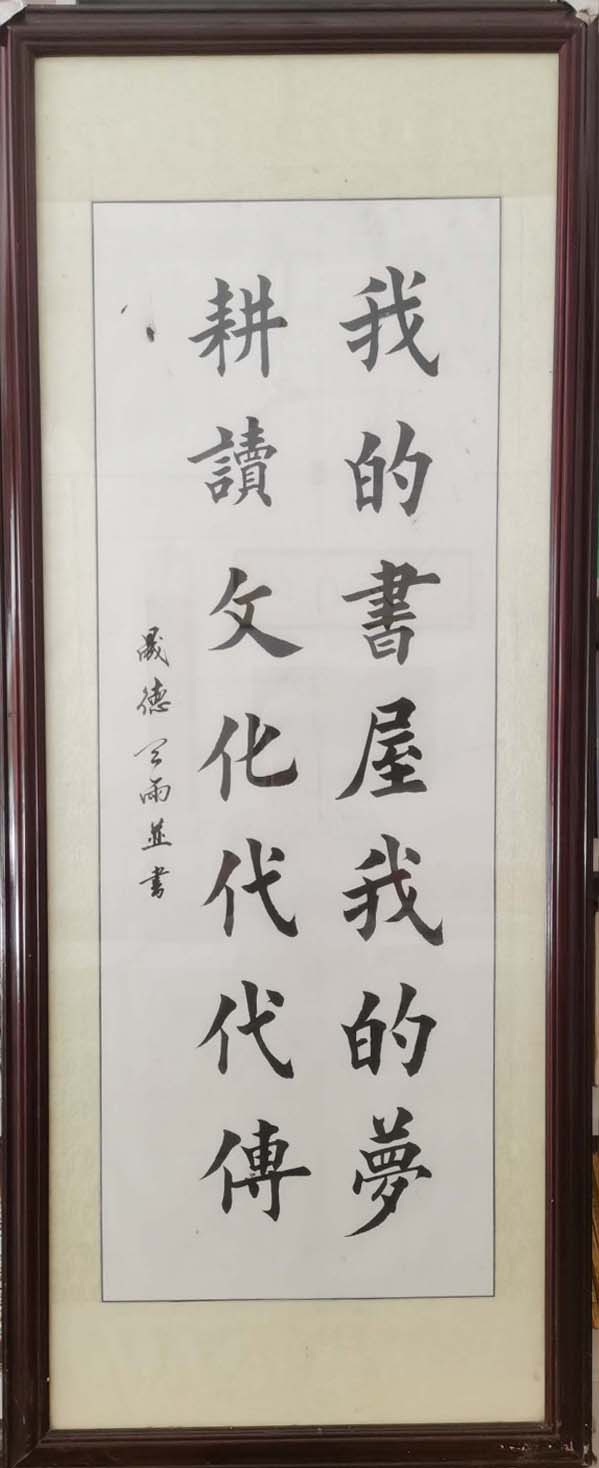 我的書屋我的夢
耕讀文化代代傳
晟德 雨並書